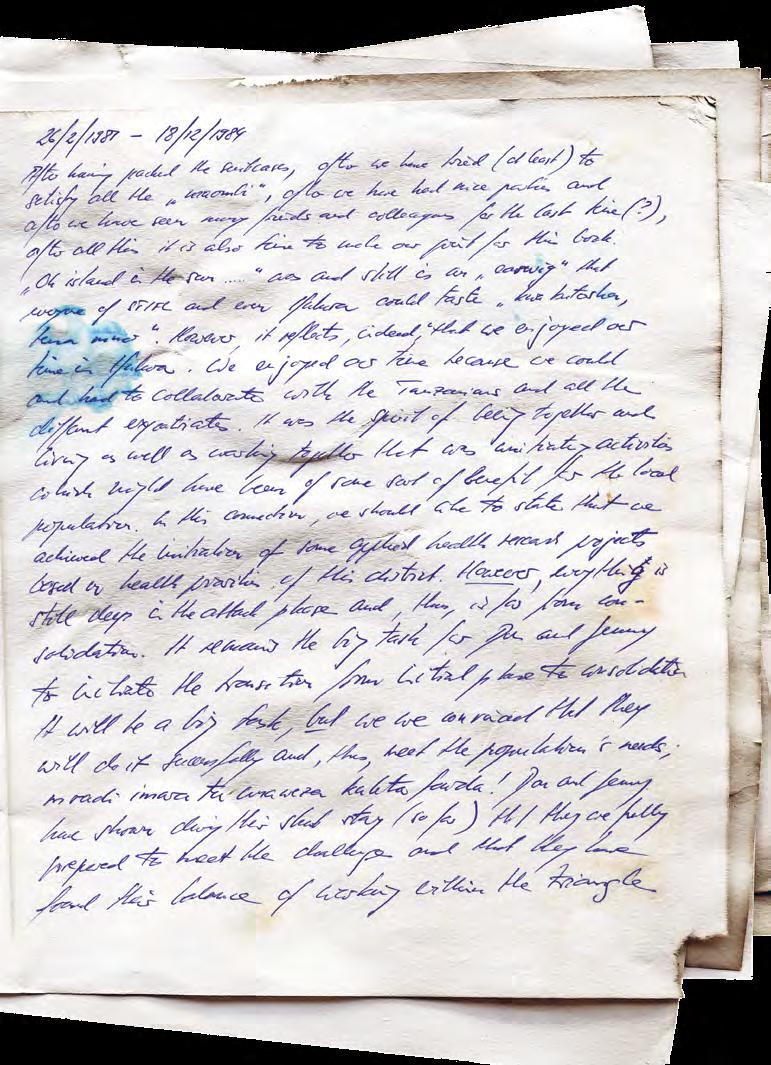 26/2/1981 – 18/12/1984
After having packed the suitcases, after we have tried (at least) to
satisfy all the „maombi“, after we have had nice parties and
after we have seen many friends and colleagues for the last time (?),
after all this it is also time to make our point for this book.
„Oh island in the sun .....“ was and still is an „earwig“ that
of STIFL and even Ifakara could taste „
". However, it reflects, indeed, that we enjoyed our
time in Ifakara. We enjoyed our time because we could
and had to collaborate with the Tanzanians and all the
different expatriates. It was the spirit of being together and
living as well as working together that was initiating activities
which might have been of some sort of benefit for the local
population. In this connection, we should like to state that we
achieved the initiation of some applied health research projects
based on health priorities of this district. However, everything is
still deep in the attack phase and, thus, is far from con-
solidation. It remains the big task for Don and Jenny
to initiate the transition from initial phase to consolidation
It will be a big task, but we are convinced that they
will do it successfully and, thus, meet the population's needs;
mradi imara tu unaweza kuleta faida! Don and Jenny
have shown during their short stay (so far) that they are fully
prepared to meet the challenge and that they have
found their balance of working within the triangle